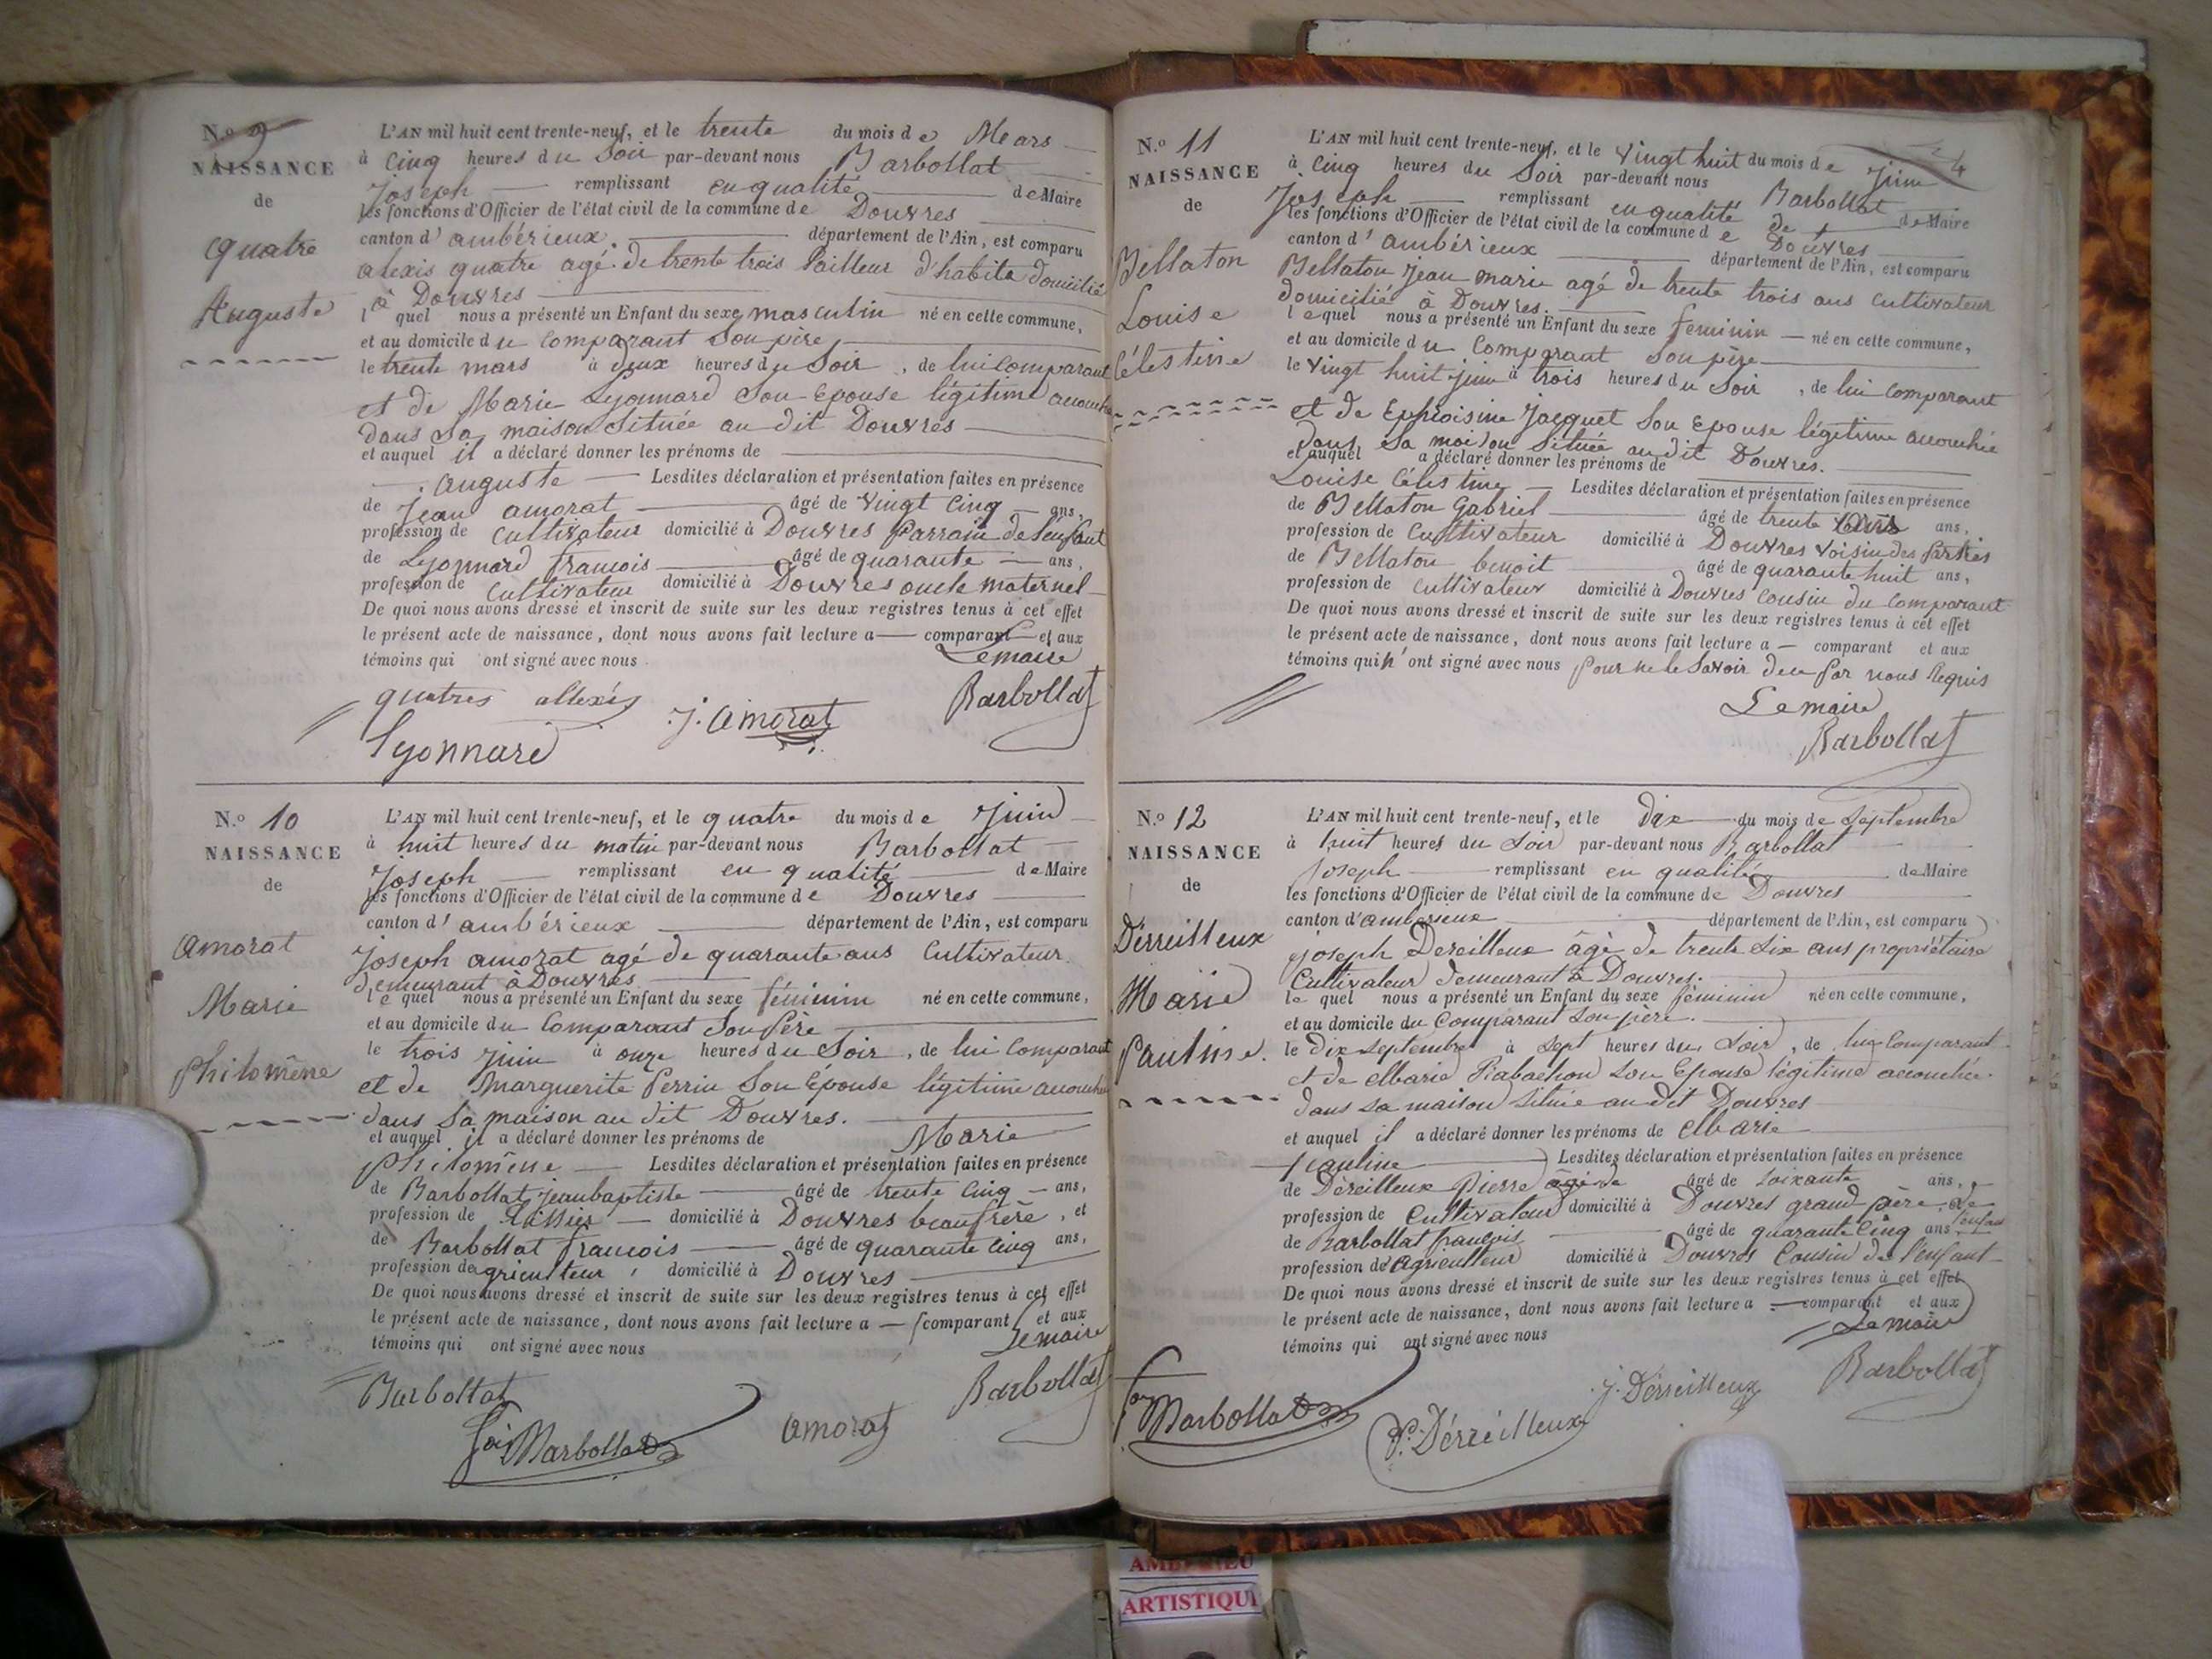 N.o 9
NAISSANCE
de
quatre
Auguste
L'AN mil huit cent trente-neuf, et le trente du mois de Mars
à Cinq heures du Soir par-devant nous Barbollat
Joseph remplissant en qualité de Maire
les fonctions d'Officier de l'état civil de la commune de Douvres
canton d'ambérieux département de l'Ain, est comparu
alexis quatre agé de trente trois tailleur d'habits domicilié
à Douvres
lequel nous a présenté un Enfant du sexe masculin né en cette commune,
et au domicile du Comparant Son père
le trente mars à deux heures du Soir, de lui Comparant
et de Marie Lyonnard Son Epouse légitime accouchée
dans Sa maison Située au dit Douvres
et auquel il a déclaré donner les prénoms de
auguste Lesdites déclaration et présentation faites en présence
de Jean amorat âgé de vingt Cinq ans,
profession de Cultivateur domicilié à Douvres Parrain de l'enfant
de Lyonnard francois âgé de quarante ans,
profession de Cultivateur domicilié à Douvres oncle maternel
De quoi nous avons dressé et inscrit de suite sur les deux registres tenus à cet effet
le présent acte de naissance, dont nous avons fait lecture a comparant et aux
témoins qui ont signé avec nous
Lemaire
quatres allexis J. amorat Barbollat
Lyonnard
N.o 10
NAISSANCE
de
amorat
Marie
Philomène
L'AN mil huit cent trente-neuf, et le quatre du mois de Juin
à huit heures du matin par-devant nous Barbollat
Joseph remplissant en qualité de Maire
les fonctions d'Officier de l'état civil de la commune de Douvres
canton d'ambérieux département de l'Ain, est comparu
Joseph amorat agé de quarante ans Cultivateur
demeurant à Douvres
lequel nous a présenté un Enfant du sexe féminin né en cette commune,
et au domicile du Comparant Son Père
le trois juin à onze heures du Soir, de lui Comparant
et de Marguerite Perrin Son Epouse légitime accouchée
dans Sa maison au dit Douvres.
et auquel il a déclaré donner les prénoms de Marie
Philomène Lesdites déclaration et présentation faites en présence
de Barbollat jeanbaptiste âgé de trente Cinq ans,
profession de domicilié à Douvres beaufrère, et
de Barbollat francois âgé de quarante Cinq ans,
profession de agriculteur, domicilié à Douvres
De quoi nous avons dressé et inscrit de suite sur les deux registres tenus à cet effet
le présent acte de naissance, dont nous avons fait lecture a comparant et aux
témoins qui ont signé avec nous
Lemaire
Barbollat Barbollat
fois Barbollat amorat
N.o 11
NAISSANCE
de
Bellaton
Louise
Célestine
4
L'AN mil huit cent trente-neuf, et le vingt huit du mois de juin
à Cinq heures du Soir par-devant nous Barbollat
Joseph remplissant en qualité de de Maire
les fonctions d'Officier de l'état civil de la commune de Douvres
canton d'ambérieux département de l'Ain, est comparu
Bellaton jean marie agé de trente trois ans Cultivateur
domicilié à Douvres.
lequel nous a présenté un Enfant du sexe féminin né en cette commune,
et au domicile du Comparant Son père
le vingt huit juin à trois heures du Soir, de lui Comparant
et de Ephroisine Jacquet Son Epouse légitime accouchée
dans Sa maison Située au dit Douvres.
et auquel a déclaré donner les prénoms de
Louise Célestine Lesdites déclaration et présentation faites en présence
de Bellaton Gabriel âgé de trente ans,
profession de Cultivateur domicilié à Douvres voisin des Parties
de Bellaton benoit âgé de quarante huit ans,
profession de Cultivateur domicilié à Douvres Cousin du Comparant
De quoi nous avons dressé et inscrit de suite sur les deux registres tenus à cet effet
le présent acte de naissance, dont nous avons fait lecture a comparant et aux
témoins qui n'ont signé avec nous Pour ne le Savoir de ce Par nous Requis
Lemaire
Barbollat
N.o 12
NAISSANCE
de
Dérreilleux
Marie
Pauline.
L'AN mil huit cent trente-neuf, et le Dix du mois de Septembre
à huit heures du Soir par-devant nous Barbollat
Joseph remplissant en qualité de Maire
les fonctions d'Officier de l'état civil de la commune de Douvres
canton d'ambérieux département de l'Ain, est comparu
joseph Dereilleux âgé de trente Six ans propriétaire
Cultivateur demeurant à Douvres.
lequel nous a présenté un Enfant du sexe féminin né en cette commune,
et au domicile du Comparant Son père.
le Dix Septembre à Sept heures du Soir, de lui Comparant
et de Marie Son Epouse légitime accouchée.
dans Sa maison Située au dit Douvres
et auquel il a déclaré donner les prénoms de Marie
pauline Lesdites déclaration et présentation faites en présence
de Déreilleux Pierre âgé de âgé de Soixante ans,
profession de Cultivateur domicilié à Douvres grand père de l'enfant
de Barbollat francois âgé de quarante Cinq ans
profession de agriculteur domicilié à Douvres Cousin de l'enfant
De quoi nous avons dressé et inscrit de suite sur les deux registres tenus à cet effet
le présent acte de naissance, dont nous avons fait lecture a comparant et aux
témoins qui ont signé avec nous
Le maire
J. Dérreilleux Barbollat
fois Barbollat P. Dérreilleux
ARTISTIQU